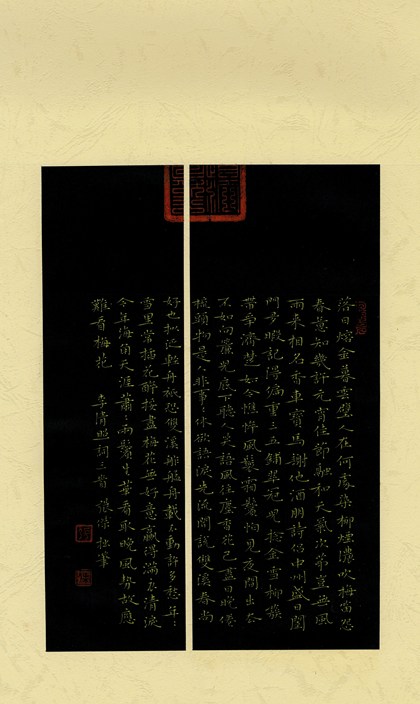 落日熔金暮雲璧人在何處染柳煙濃吹梅笛怨
春意知幾許元宵佳節融和天氣次第豈無風
雨來相召香車寶馬謝他酒朋詩侶中州盛日閨
門多暇記得偏重三五鋪翠冠兒捻金雪柳簇
帶爭濟楚如今憔悴風鬟霜鬢怕見夜間出去
不如向簾兒底下聽人笑語風住塵香花已盡日晚倦
梳頭物是人非事事休欲語淚先流聞說雙溪春尚
好也擬泛輕舟祇恐雙溪舴艋舟載不動許多愁年年
雪里常插花醉挼盡梅花無好意贏得滿衣清淚
今年海角天涯蕭蕭兩鬢生華看取晚風勢故應
難看梅花 李清照詞三首 張 拙筆